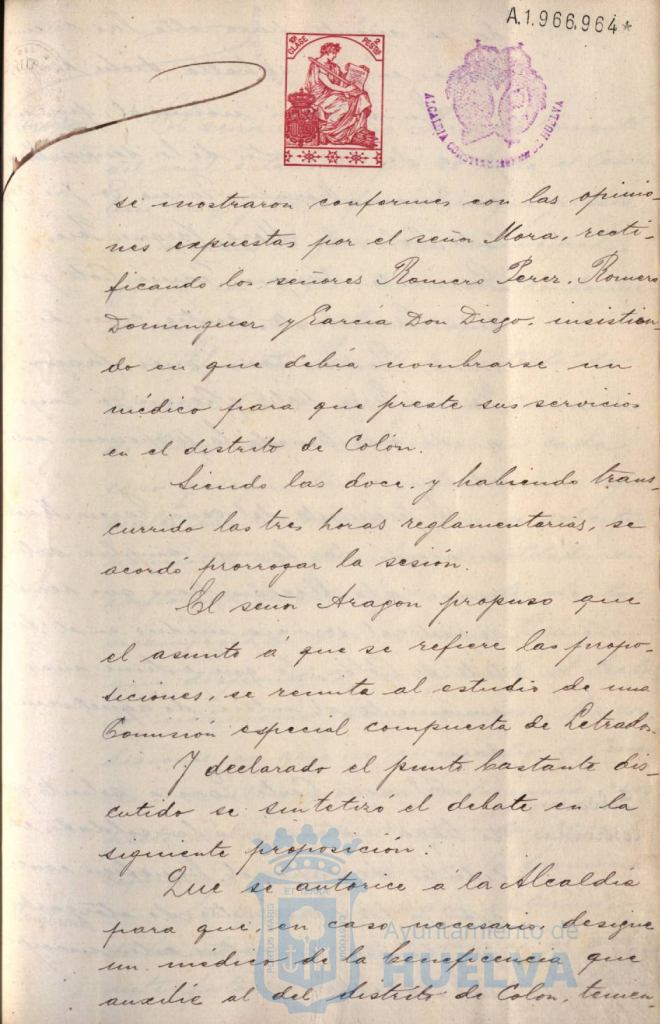 A.1.966.964*
10ª CLASE 2 PESETAS
ALCALDIA CONSTITUCIONAL DE HUELVA
se mostraron conformes con las opinio-
nes expuestas por el señor Mora, recti-
ficando los señores Romero Perez, Romero
Dominguez y Garcia Don Diego, insistien-
do en que debia nombrarse un
médico para que preste sus servicios
en el distrito de Colón.
Siendo las doce, y habiendo trans-
currido las tres horas reglamentarias, se
acordó prorrogar la sesión.
El señor Aragon propuso que
el asunto á que se refiere las propo-
siciones, se remita al estudio de una
Comisión especial compuesta de Letrados.
Y declarado el punto bastante dis-
cutido se sintetizó el debate en la
siguiente proposición:
Que se autorice á la Alcaldia
para que, en caso necesario, designe
un médico de la beneficencia que
auxilie al del distrito de Colon, tenien-
Ayuntamiento de
HUELVA